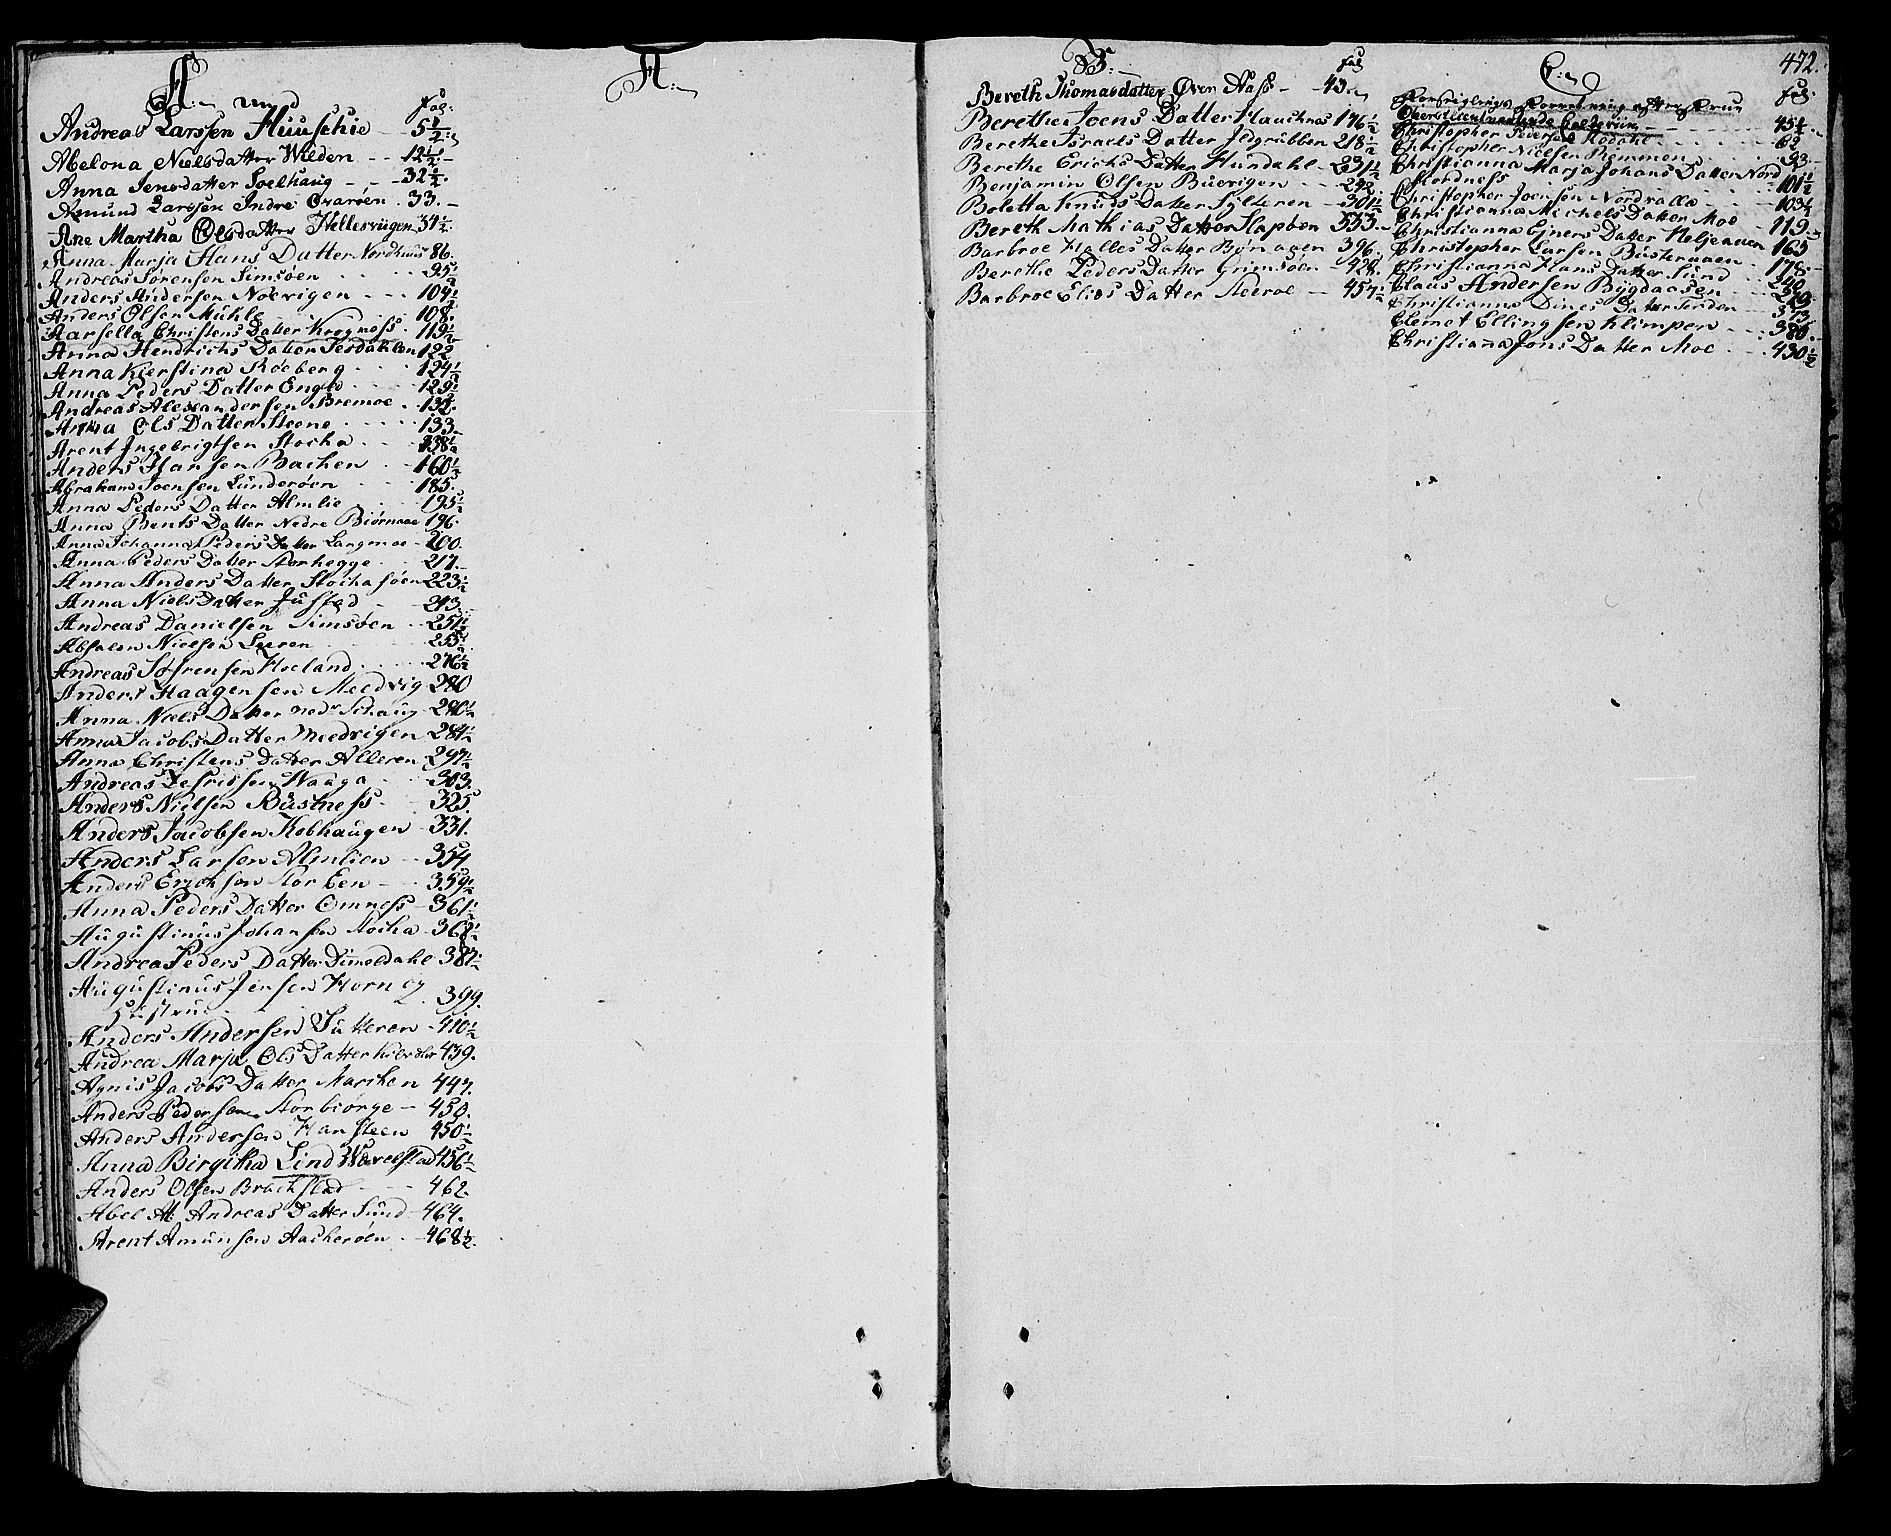 A:
fol:
Andreas Larssen Huuschie 5½
Abelona Nielsdatter Wilden 12½
Anna Jensdatter Soelhaug 32½
Amund Larssen Indre Oxarøen 33.
Ane Martha Olsdatter Hellesvigen 34½
Anna Marja Hans Datter Nordhuus 86.
Andreas Sørensen Simsøen 95½
Anders Andersen Noevigen 104½
Anders Olsen Mühle 108.
Marsella Christens Datter Krogness 119½
Anna Hendrichs Datter Jesdahlen 122
Anna Kierstina Roeberg 124½
Anna Peders Datter Enge 129½
Andreas Alexandersen Bremoe 132.
Anna Ols Datter Steene 133.
Arent Ingebrigtsen Stocha 138½
Anders Hansen Bachen 160½
Abraham Joensen Lunderøen 185.
Anna Peders Datter Almlie 195½
Anna Bents Datter Nedre Biørnaae 196.
Anna Johanna Peders Datter Langmoe 200.
Anna Peders Datter Storhegge 217.
Anna Anders Datter Stochasøen 223½
Anna Niels Datter Justad 243.
Andreas Danielsen Simsøen 251½
Absalon Nielsen Leeren 255½
Andreas Søfrensen Hoeland 276½
Anders Haagensen Meedvig 280
Anna Niels Datter nedr Schaug 280½
Anna Jacobs Datter Meedvigen 284½
Anna Christens Datter Alleren 297½
Andreas Zefridsen Waaga 303.
Anders Nielsen Büstness 325.
Anders Jacobsen Kobhaugen 331.
Anders Larsen Almlien 354.
Anders Ericksen Storben 359½
Anna Peders Datter Omness 361½
Augustinus Johansen Stocha 368½
Andrea Peders Datter Dimeldahl 387½
Augustinus Jensen Horn og
Hustrue 399.
Anders Andersen Sutteren 410½
Andrea Marja Ols Datter 439.
Agnis Jacobs Datter Marthen 447.
Anders Pedersen Storbiørge 450.
Anders Andersen Hansteen 450½
Anna Birgitha Lind Warelstad 456½
Anders Olsen Brachstad 462.
Abel M. Andreas Datter Sund 464.
Arent Amunsen Aacherøen 468½
A:
B:
fol
Bereth Thomasdatter Øvre Næss 43.
Berethe Joens Datter Hauchnes 176½
Berethe Israels Datter Ildgrubben 218½
Berethe Erichs Datter Hundahl 231½
Benjamin Olsen Buevigen 292.
Boletta Knuds Datter Sylteren 301½
Bereth Mathias Datter Slapøen 333.
Barbroe Halles Datter Børnaaen 396.
Berethe Peders Datter Grimsøen 428.
Barbroe Elias Datter Steeroe 457½
C:
472.
fol:
45½
Christopher Pedersen Kosdahl 62
Christopher Nielsen Remmen 93.
Christianna Marja Johans Datter Nord
Stordness 101½
Christopher Joensen Nordvalla 103½
Christianna Michels Datter Moe 119.
Christianna Ejners Datter Neljeaaen 165
Christopher Larsen Büsteraaen 178.
Christianna Hans Datter Sund 240.
Claus Andersen Bygdaasen 279.
Christianna Dines Datter Forden 373.
Clemet Ellingsen Klimpen 380.
Christianna Jons Datter Moe 430½